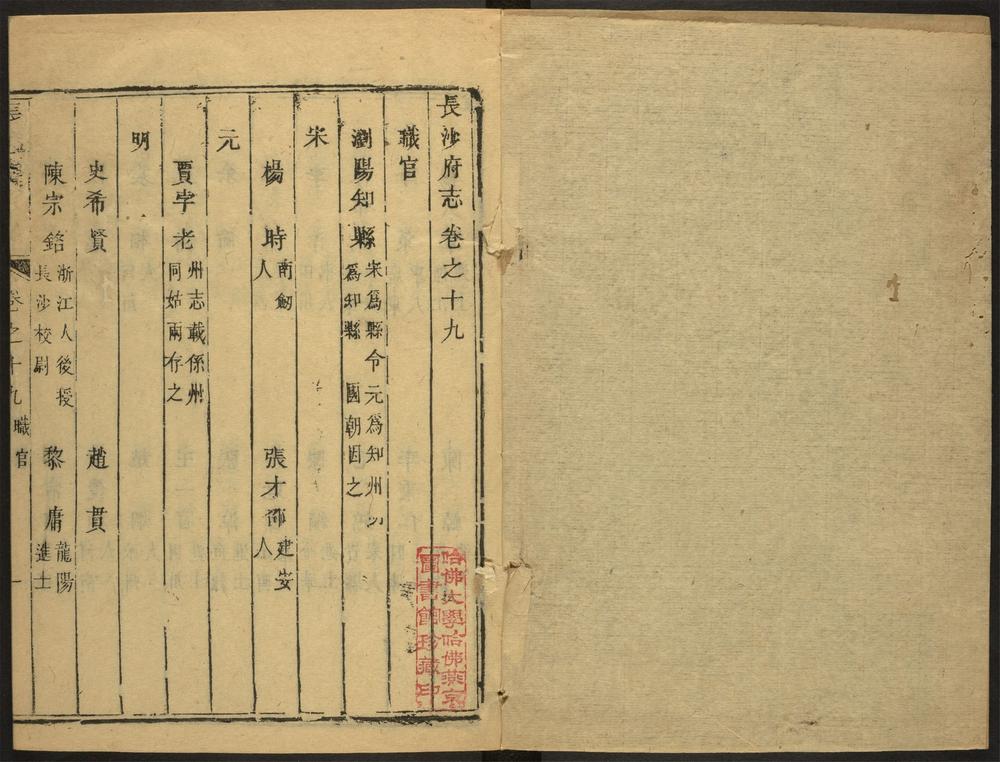 長沙府志 卷之十九
職官
瀏陽知縣 宋爲縣令元爲知州
爲知縣 國朝因之
宋
楊時 南劒
人
張才邵 建安
人
元
賈孛老 州志載係州
同姑兩存之
明
史希賢 趙貫
陳宗銘 浙江人後授
長沙校尉
黎庸 龍陽
進士
卷之十九 職官 一
哈佛大學哈佛燕京
圖書館珍藏印